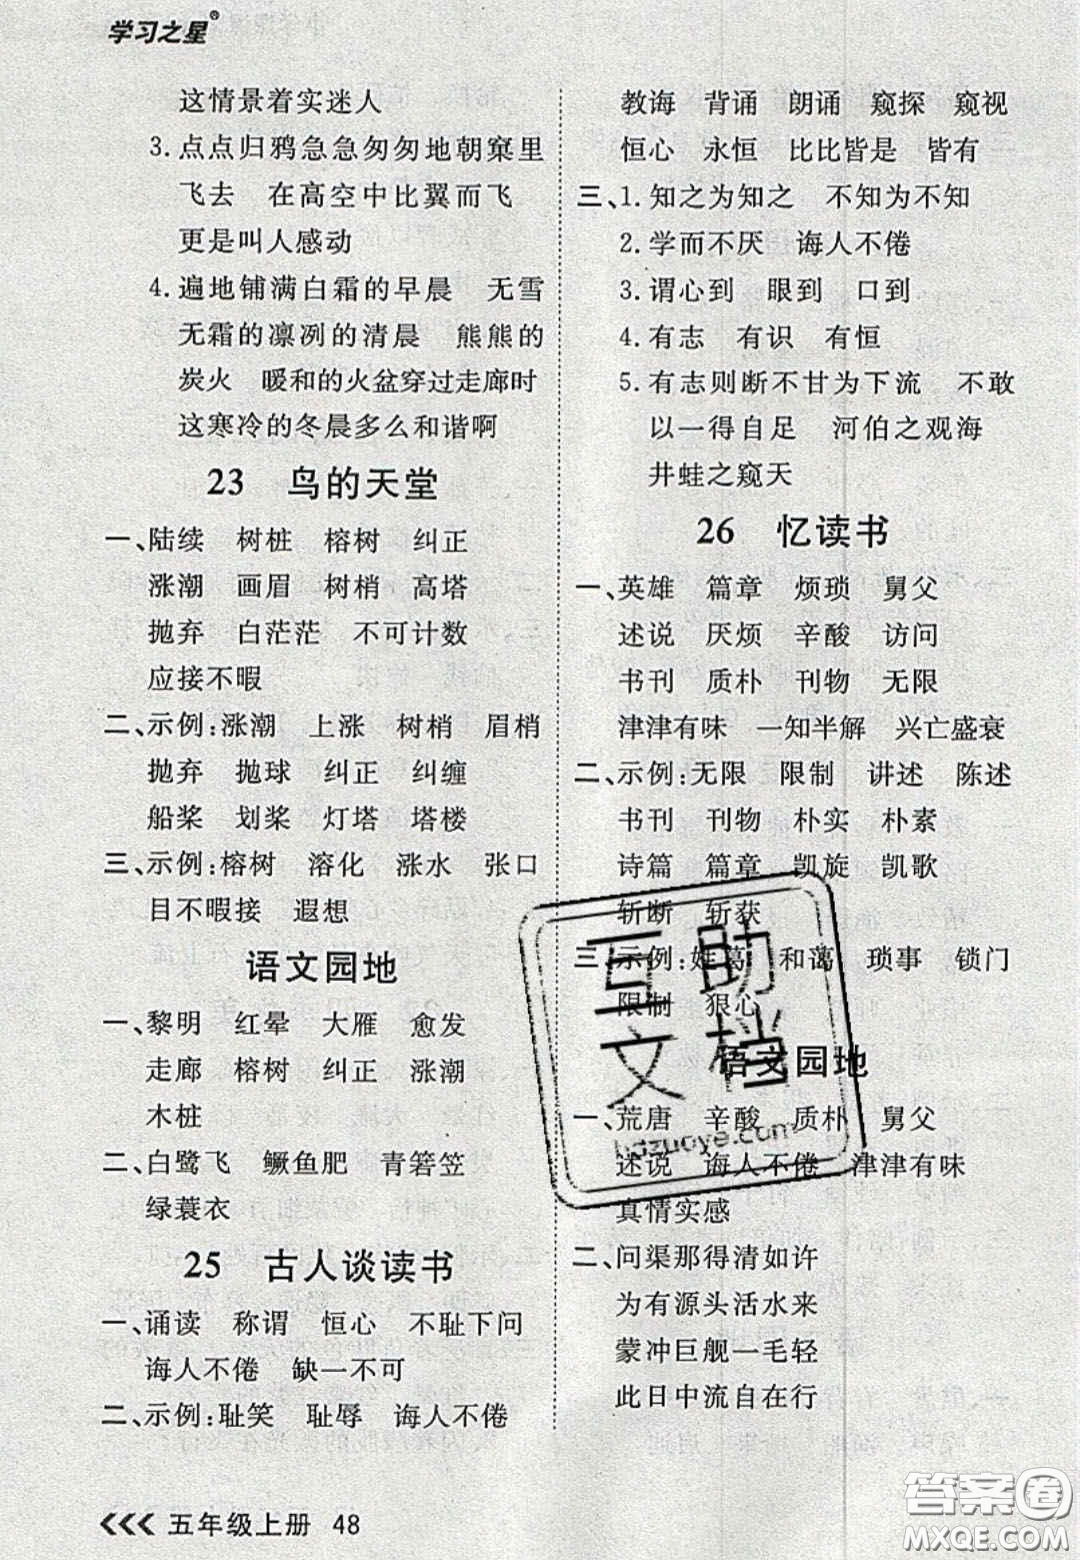 学习之星®
这情景着实迷人
3.点点归鸦急急匆匆地朝窠里
飞去 在高空中比翼而飞
更是叫人感动
4.遍地铺满白霜的早晨 无雪
无霜的凛冽的清晨 熊熊的
炭火 暖和的火盆穿过走廊时
这寒冷的冬晨多么和谐啊
23 鸟的天堂
一、陆续 树桩 榕树 纠正
涨潮 画眉 树梢 高塔
抛弃 白茫茫 不可计数
应接不暇
二、示例:涨潮 上涨 树梢 眉梢
抛弃 抛球 纠正 纠缠
船桨 划桨 灯塔 塔楼
三、示例:榕树 溶化 涨水 张口
目不暇接 遐想
语文园地
一、黎明 红晕 大雁 愈发
走廊 榕树 纠正 涨潮
木桩
二、白鹭飞 鳜鱼肥 青箬笠
绿蓑衣
25 古人谈读书
一、诵读 称谓 恒心 不耻下问
诲人不倦 缺一不可
二、示例:耻笑 耻辱 诲人不倦
教诲 背诵 朗诵 窥探 窥视
恒心 永恒 比比皆是 皆有
三、1.知之为知之 不知为不知
2.学而不厌 诲人不倦
3.谓心到 眼到 口到
4.有志 有识 有恒
5.有志则断不甘为下流 不敢
以一得自足 河伯之观海
井蛙之窥天
26 忆读书
一、英雄 篇章 烦琐 舅父
述说 厌烦 辛酸 访问
书刊 质朴 刊物 无限
津津有味 一知半解 兴亡盛衰
二、示例:无限 限制 讲述 陈述
书刊 刊物 朴实 朴素
诗篇 篇章 凯旋 凯歌
斩断 斩获
三、示例:姓葛 和蔼 琐事 锁门
限制 狠心
语文园地
一、荒唐 辛酸 质朴 舅父
述说 诲人不倦 津津有味
真情实感
二、问渠那得清如许
为有源头活水来
蒙冲巨舰一毛轻
此日中流自在行
互助
文档
hdzuoye.com
五年级上册 48
答案圈
MXQE.COM